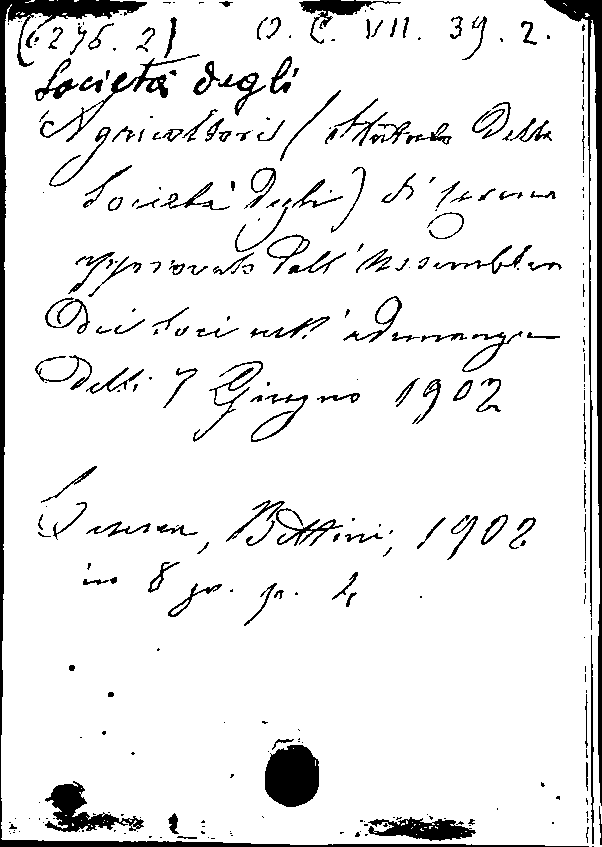 (6276.2) O. C. VII. 39. 2.
Società degli
Agricoltori (Statuto Della
Società Degli) di Cesena
approvato Dall'Assemblea
Dei Soci nell'adunanza
Delli 7 Giugno 1902
Cesena, Bettini, 1902
in 8 gr. p. 4